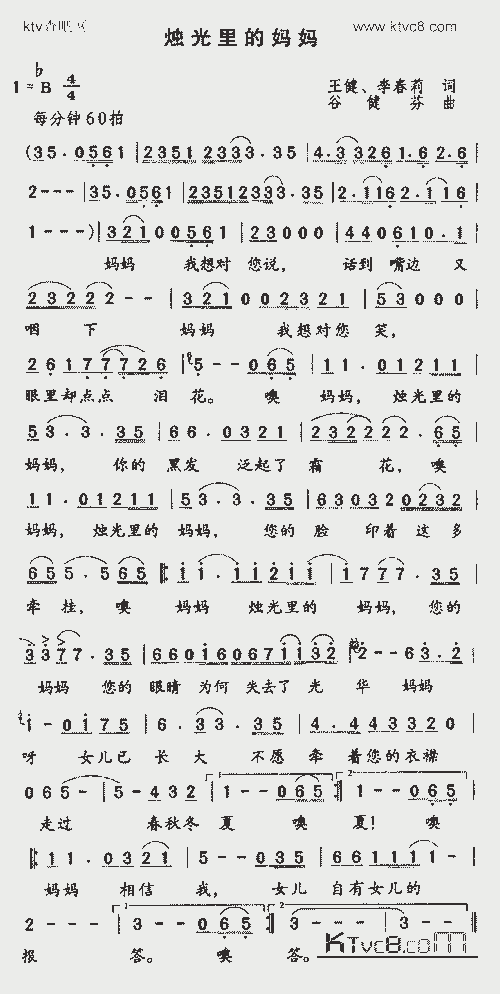 ktv香吧网 www.ktvc8.com
烛光里的妈妈
1=♭B 4/4
王健、李春莉 词
谷 健 芬 曲
每分钟60拍
(35·0561|23512333·35|4·33261·62·6|
2---|35·0561|23512333·35|2·1162·116|
1---)|32100561|23000|440610·1|
妈妈 我想对 您说, 话到 嘴边 又
23222--|321002321|53000|
咽 下 妈妈 我想对您 笑,
26177726|5--065|11·01211|
眼里却点点 泪 花。 噢 妈妈, 烛光里的
53·3·35|66·0321|2322 22·65|
妈妈, 你的 黑发 泛起了 霜 花, 噢
11·01211|53·3·35|630320232|
妈妈, 烛光里的 妈妈, 您的 脸 印着 这 多
655·565|:11·11211|1777·35|
牵 挂, 噢 妈妈 烛光里的 妈妈, 您的
3377·35|66010606711132|2--63·2|
妈妈 您的 眼睛 为何 失去了 光 华 妈妈
1-0175|6·33·35|4·443320|
呀 女儿已 长 大 不愿 牵 着您的衣襟
065-|5-432|1--065:|1--065|
走过 春秋冬 夏 噢 夏! 噢
|:11·0321|5--035|661111-|
妈妈 相信 我, 女儿 自有女儿的
2---|3--065:|3---|3---|
报 答。 噢 答。
KTvc8.com